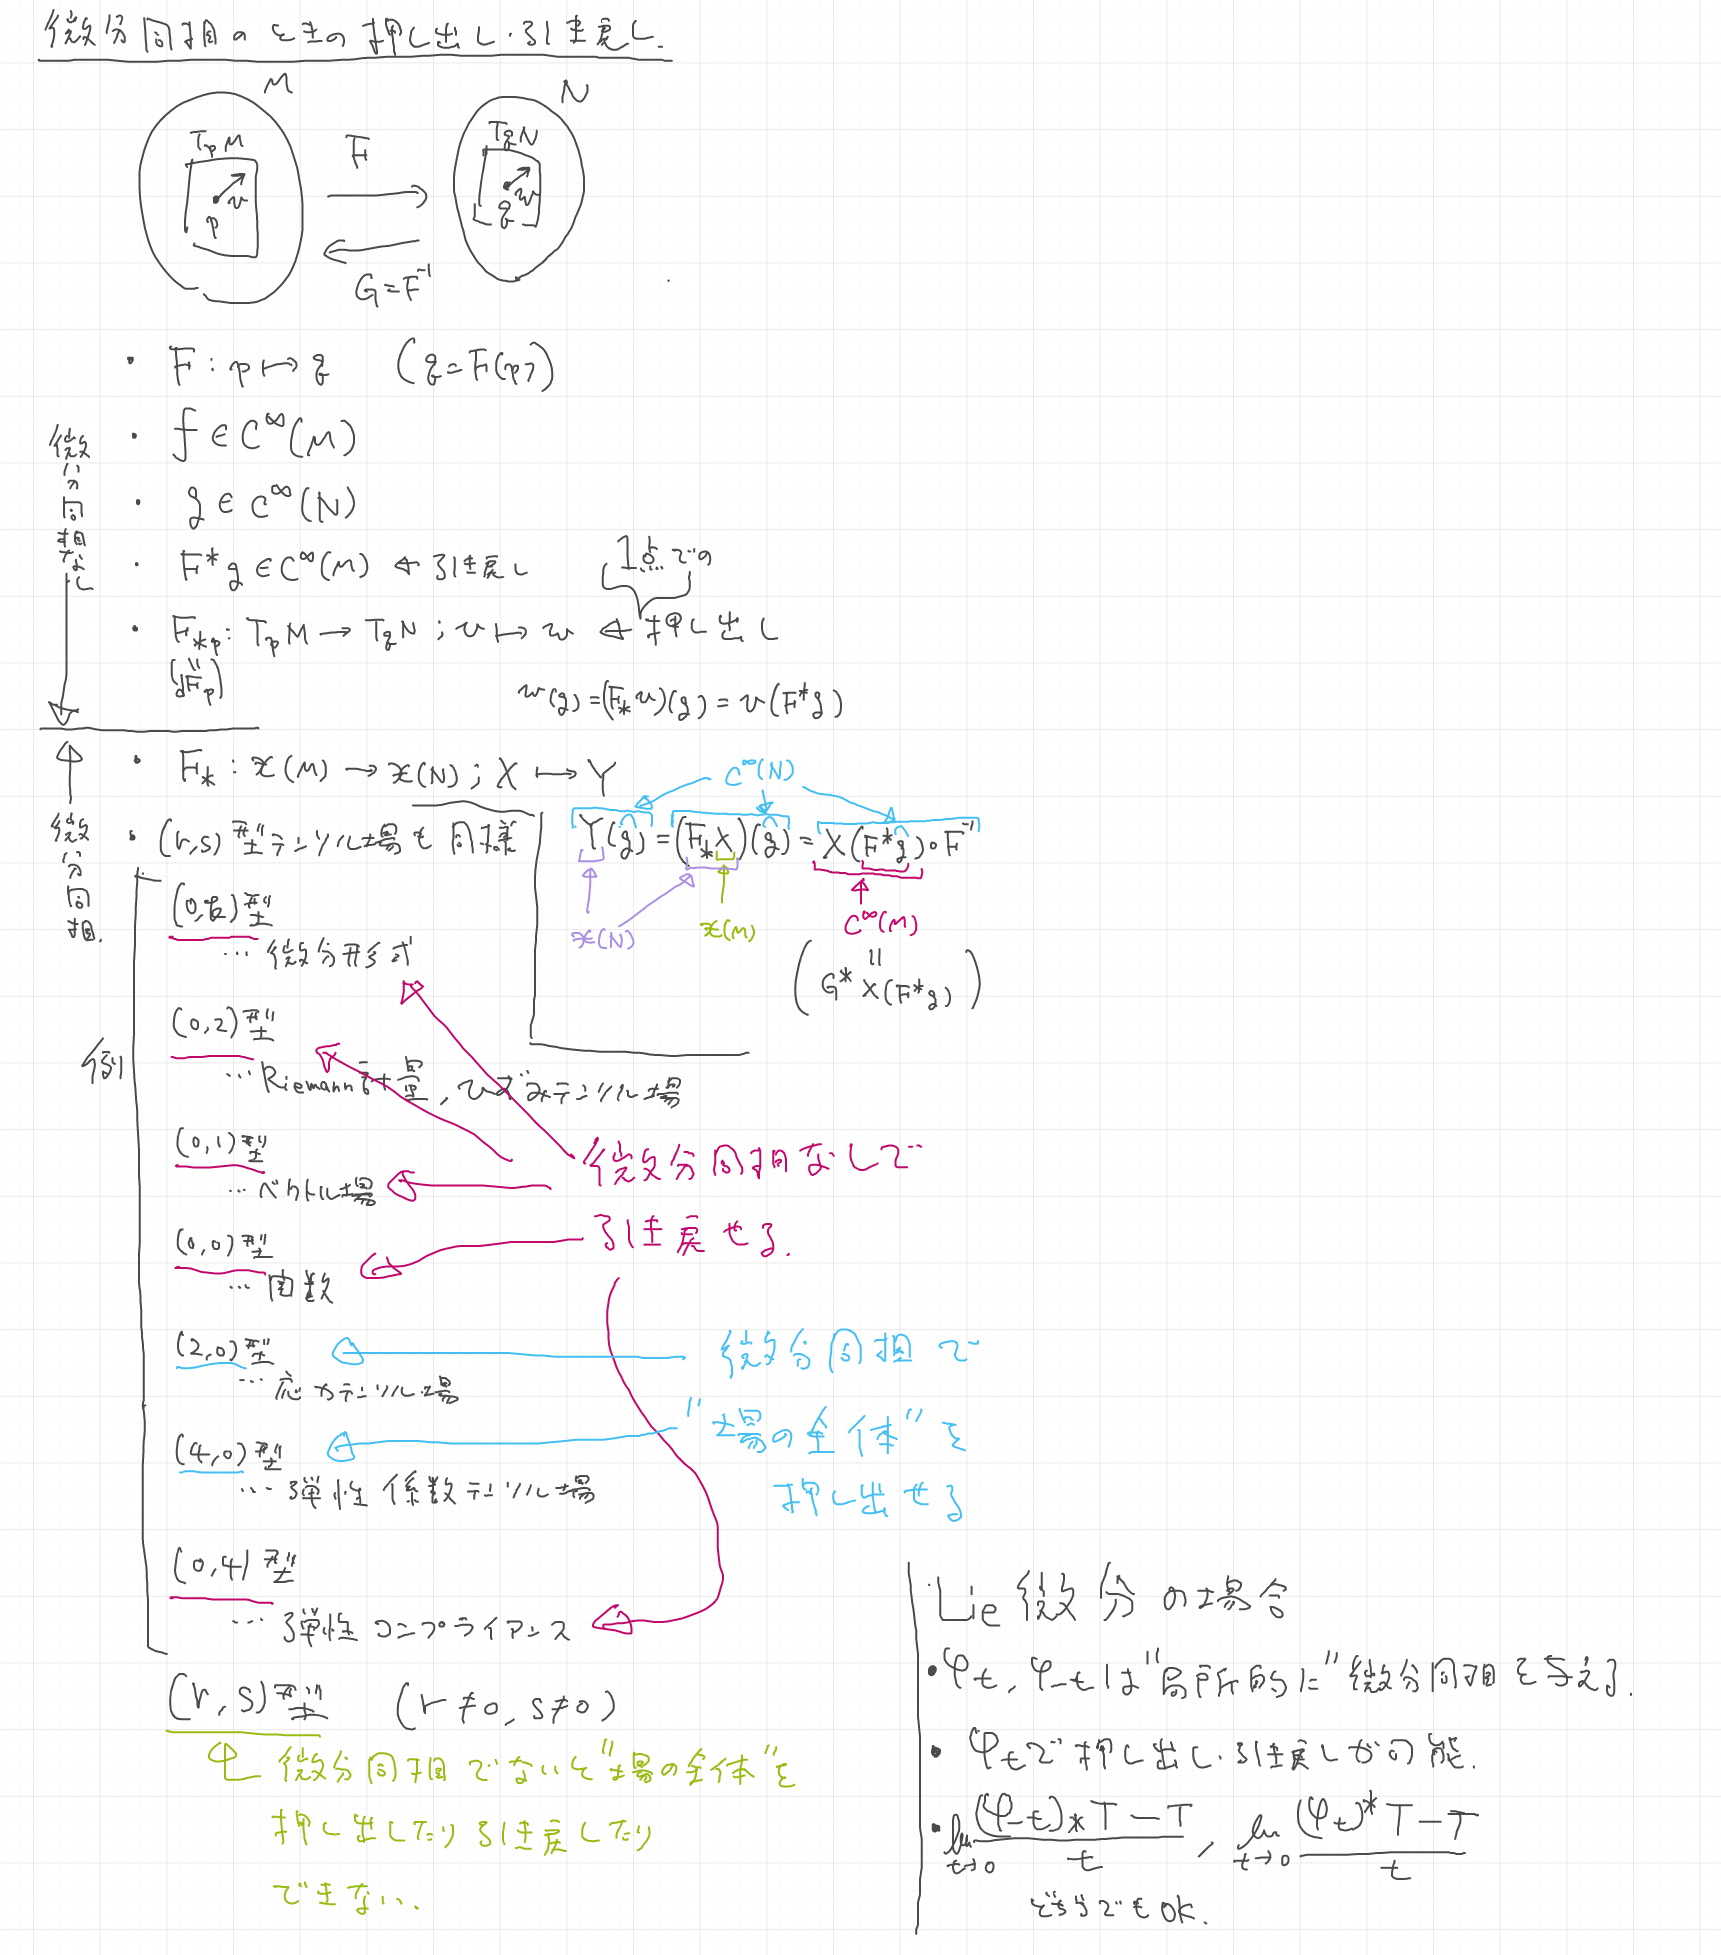 微分同相のときの押し出し・引き戻し.
M
N
TpM
TqN
F
v
p
w
q
G=F⁻¹
・ F : p ↦ q (q=F(p))
・ f ∈ C^∞(M)
・ g ∈ C^∞(N)
・ F*g ∈ C^∞(M) ← 引き戻し
1点での
・ F_{*p} : TpM → TqN ; v ↦ w ← 押し出し
(dFp)
w(g) = (F_* v)(g) = v(F*g)
微分同相なし
・ F_* : 𝔛(M) → 𝔛(N) ; X ↦ Y
C^∞(N)
・ (r,s)型テンソル場も同様
Y(g) = (F_* X)(g) = X(F*g)∘F⁻¹
𝔛(N)
𝔛(M)
C^∞(M)
(G* X(F*g))
微分同相.
例
(0,k)型
… 微分形式
(0,2)型
… Riemann計量, ひずみテンソル場
(0,1)型
… ベクトル場
(0,0)型
… 関数
微分同相なしで
引き戻せる.
(2,0)型
… 応力テンソル場
(4,0)型
… 弾性係数テンソル場
微分同相で
"場の全体"を
押し出せる
(0,4)型
… 弾性コンプライアンス
(r,s)型 (r≠0, s≠0)
微分同相でないと"場の全体"を
押し出したり引き戻したり
できない.
Lie微分の場合
・φt, φ-tは"局所的に"微分同相を与える.
・φtで押し出し・引き戻しが可能.
・lim_{t→0} ((φ-t)_* T − T)/t , lim_{t→0} ((φt)* T − T)/t
どちらでもOK.